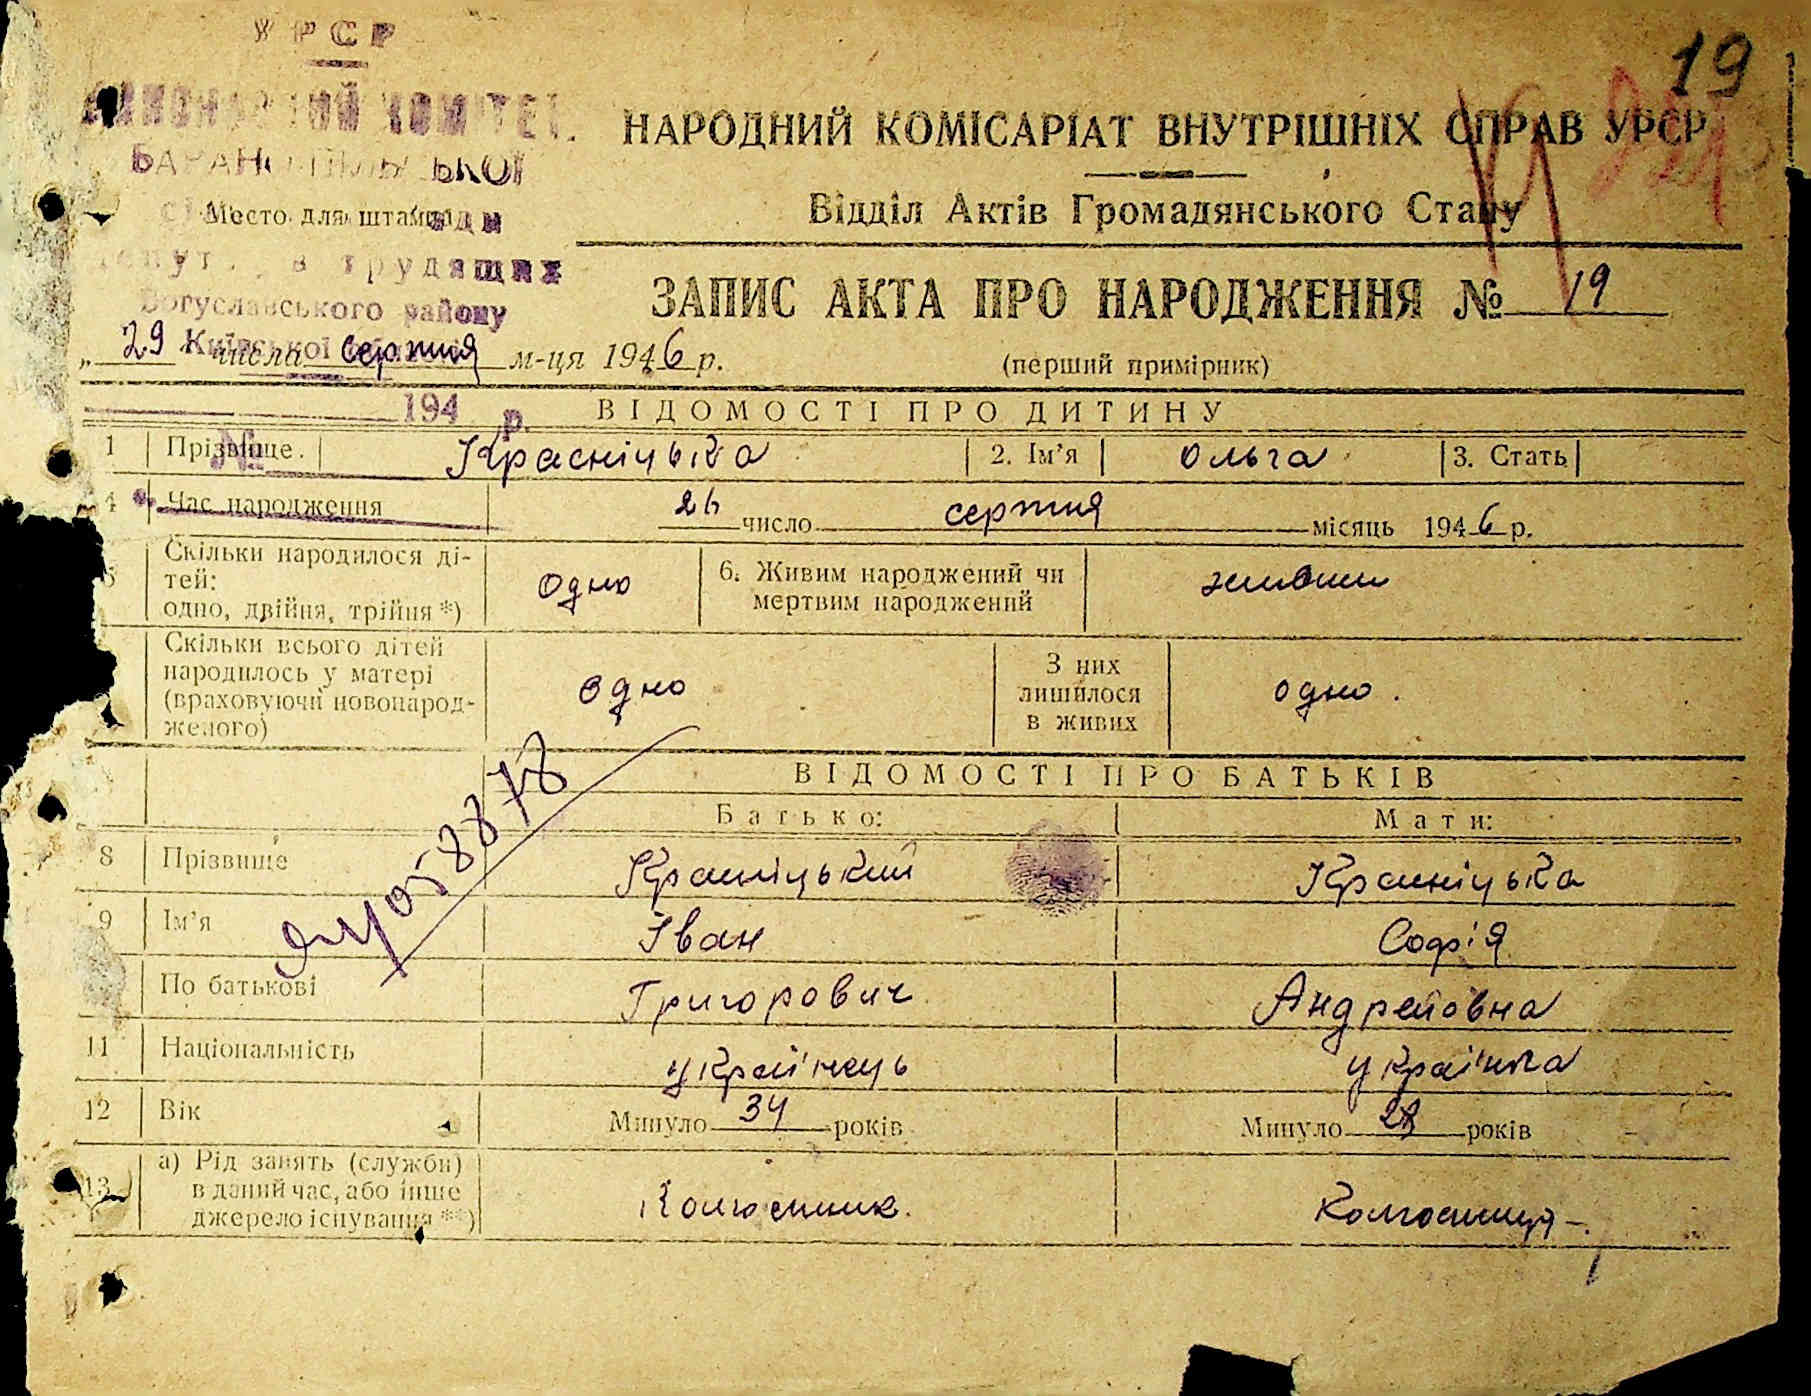 УРСР
ВИКОНАВЧИЙ КОМІТЕТ
Место для штампа
трудящих
Богуславського району
Київської
194 р.
№
19
НАРОДНИЙ КОМІСАРІАТ ВНУТРІШНІХ СПРАВ УРСР
Відділ Актів Громадянського Стану
ЗАПИС АКТА ПРО НАРОДЖЕННЯ № 19
„29 числа серпня м-ця 1946 р.
(перший примірник)
ВІДОМОСТІ ПРО ДИТИНУ
1 Прізвище. Красніцька 2. Ім'я Ольга 3. Стать
4 Час народження 26 число серпня місяць 1946 р.
5 Скільки народилося ді-
тей:
одно, двійня, трійня *) одно 6. Живим народжений чи
мертвим народжений живим
Скільки всього дітей
народилось у матері
(враховуючи новонарод-
женого) одно З них
лишилося
в живих одно.
ВІДОМОСТІ ПРО БАТЬКІВ
Батько: Мати:
8 Прізвище Красніцький Красніцька
9 Ім'я Іван Софія
По батькові Григорович Андреївна
11 Національність українець українка
12 Вік Минуло 34 років Минуло 28 років
13 а) Рід занять (служби)
в даний час, або інше
джерело існування **) Колгоспник. Колгоспниця